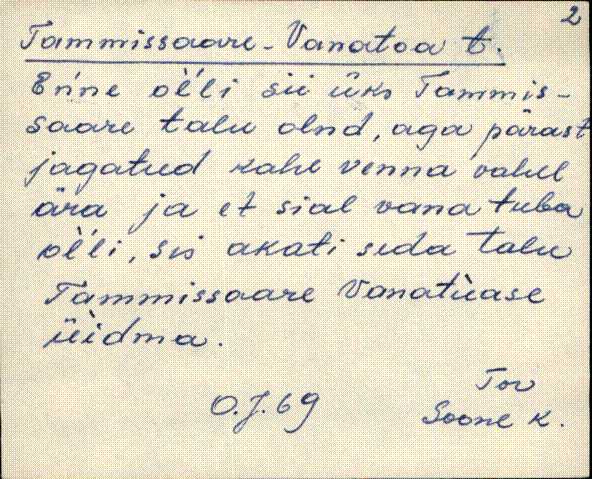 2
Tammissaare-Vanatoa t.
Enne òlli sii üks Tammis-
saare talu olnd, aga pärast
jagatud kahe venna vahel
ära ja et sial vana tuba
òlli, sis akati seda talu
Tammissaare Vanatùase
üìdma.
O.J.69
Tor
Soone k.